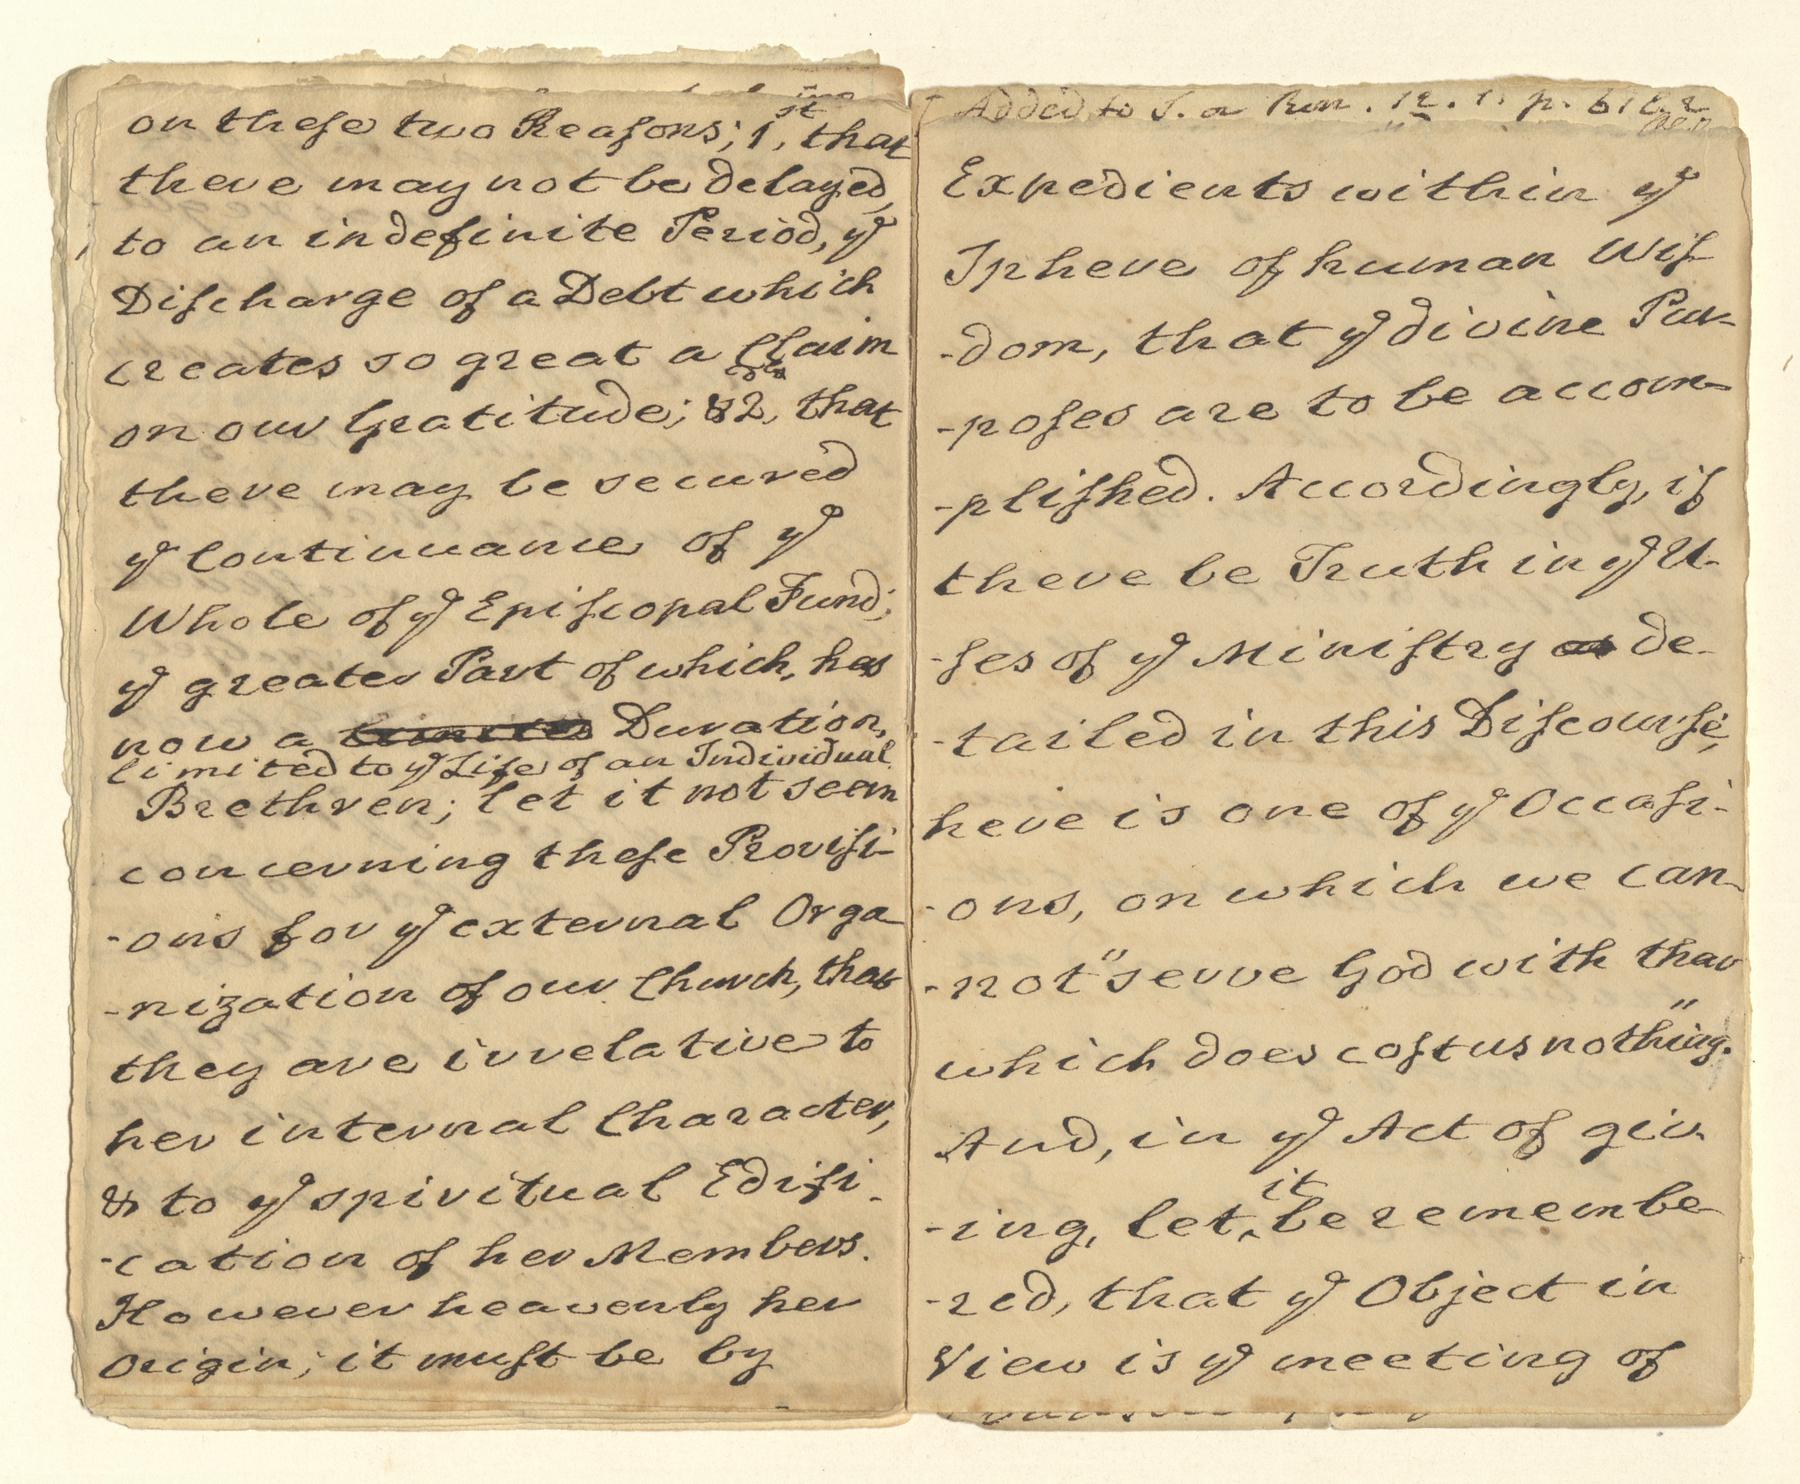 on these two Reasons; 1st, that
there may not be delayed,
to an indefinite Period, ye
Discharge of a Debt which
creates so great a Claim
on our Gratitude; & 2, that
there may be secured
ye Continuance of ye
Whole of ye Episcopal Fund;
ye greater Part of which, has
now a limited Duration,
limited to ye Life of an Individual.
Brethren; let it not seem
concerning these Provisi-
-ons for ye external Orga-
-nization of our Church, that
they are irrelative to
her internal Character,
& to ye spiritual Edifi-
-cation of her Members.
However heavenly her
Origin; it must be by
Added to S. a Rom. 12. 1. p.
Expedients within ye
Sphere of human Wis-
-dom, that ye divine Pur-
-poses are to be accom-
-plished. Accordingly, if
there be Truth in ye U-
-ses of ye Ministry de-
-tailed in this Discourse,
here is one of ye Occasi-
-ons, on which we can-
-not "serve God with that
which does cost us nothing."
And, in ye Act of giv-
-ing, let it be remembe-
-red, that ye Object in
View is ye meeting of